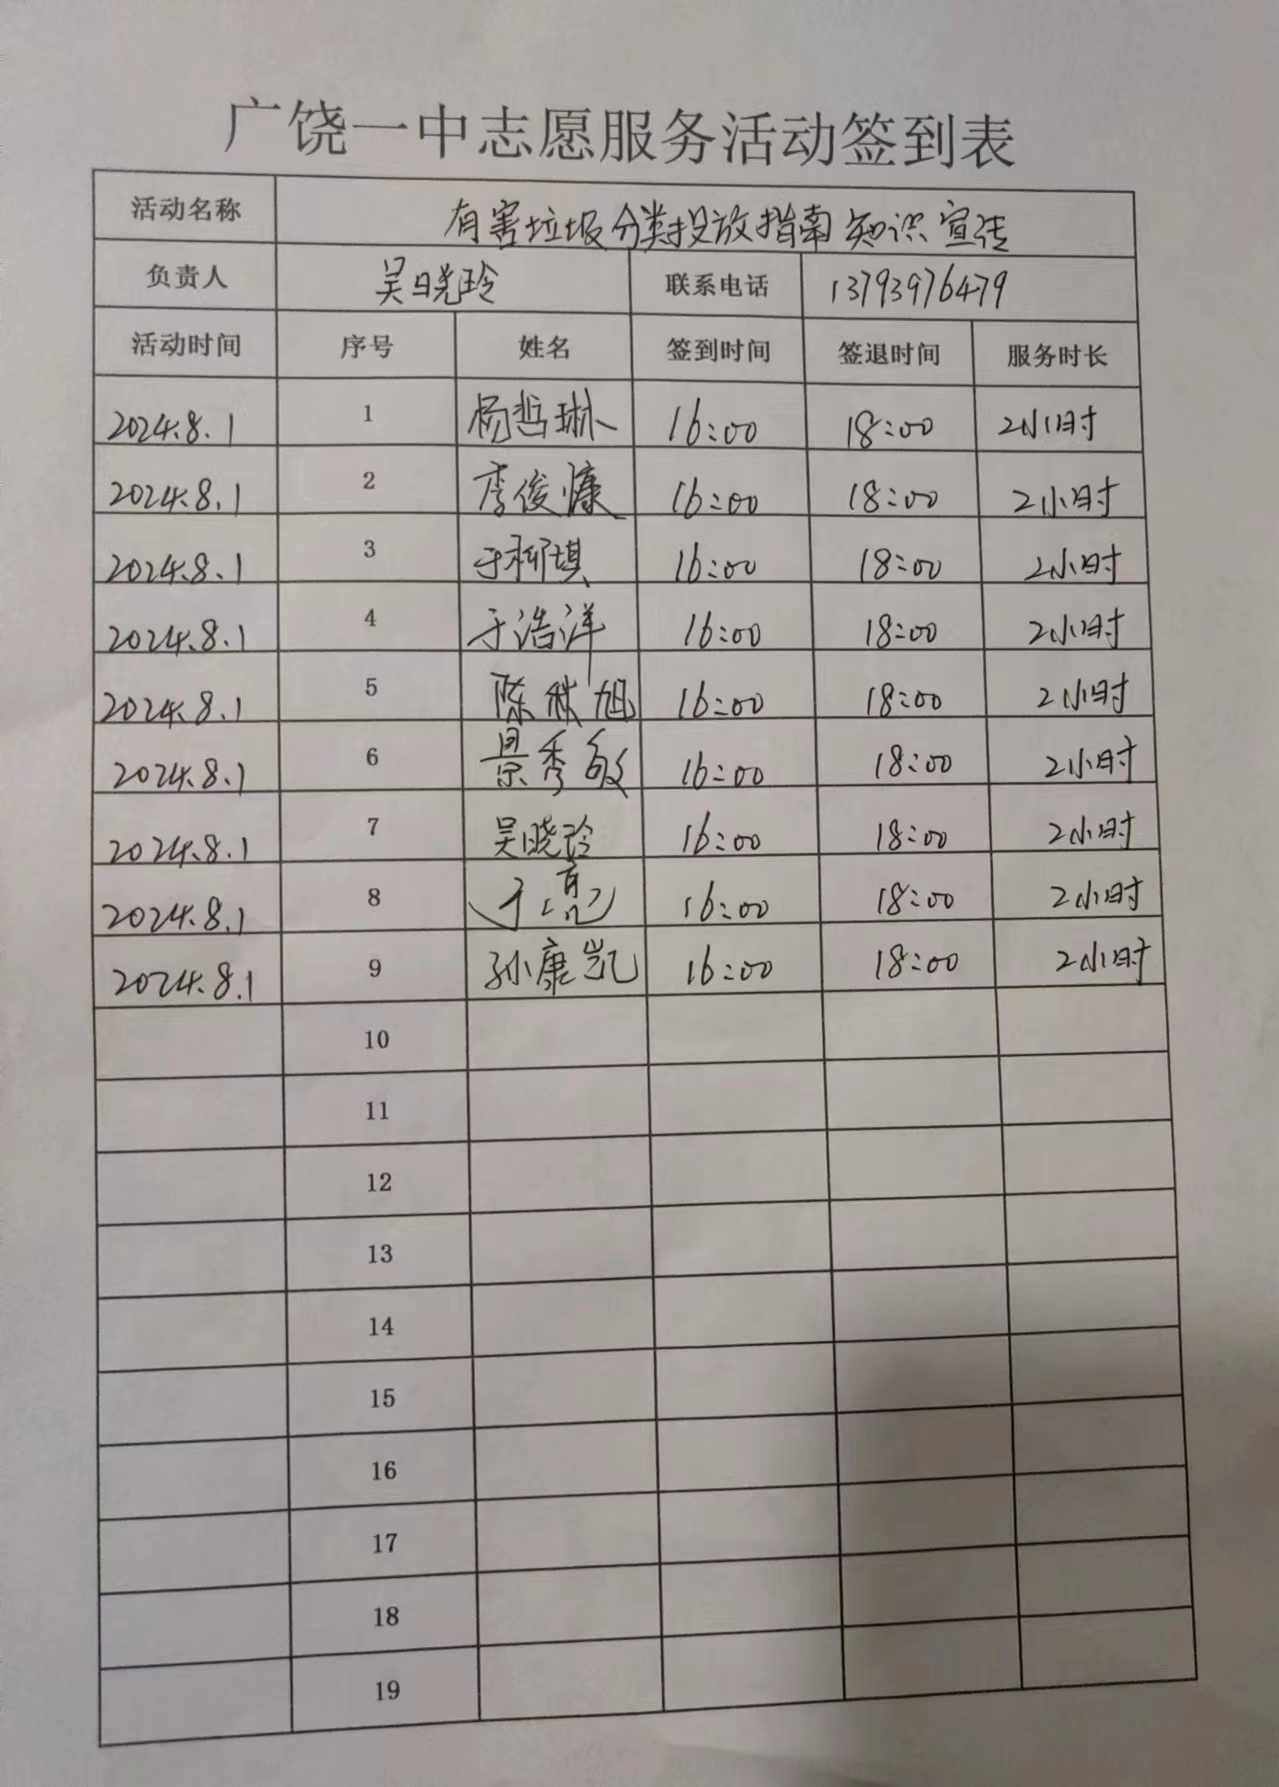 广饶一中志愿服务活动签到表
活动名称 有害垃圾分类投放指南知识宣传
负责人 吴晓玲 联系电话 13793976479
活动时间 序号 姓名 签到时间 签退时间 服务时长
2024.8.1 1 杨哲琳 16:00 18:00 2小时
2024.8.1 2 李俊慷 16:00 18:00 2小时
2024.8.1 3 于祈琪 16:00 18:00 2小时
2024.8.1 4 于浩洋 16:00 18:00 2小时
2024.8.1 5 陈秋旭 16:00 18:00 2小时
2024.8.1 6 景秀敏 16:00 18:00 2小时
2024.8.1 7 吴晓玲 16:00 18:00 2小时
2024.8.1 8 于亮 16:00 18:00 2小时
2024.8.1 9 孙康凯 16:00 18:00 2小时
10
11
12
13
14
15
16
17
18
19